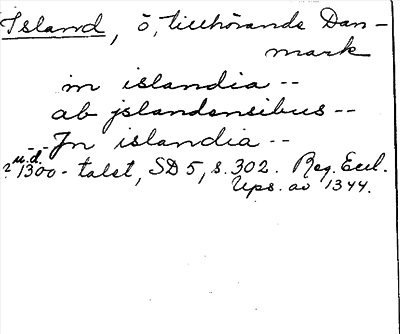 Island, ö, tillhörande Dan-
mark
in islandia --
ab jslandensibus --
-- Jn islandia --
u.d.
? 1300-talet, SD 5, s. 302. Reg. Eccl.
Ups. av 1344.